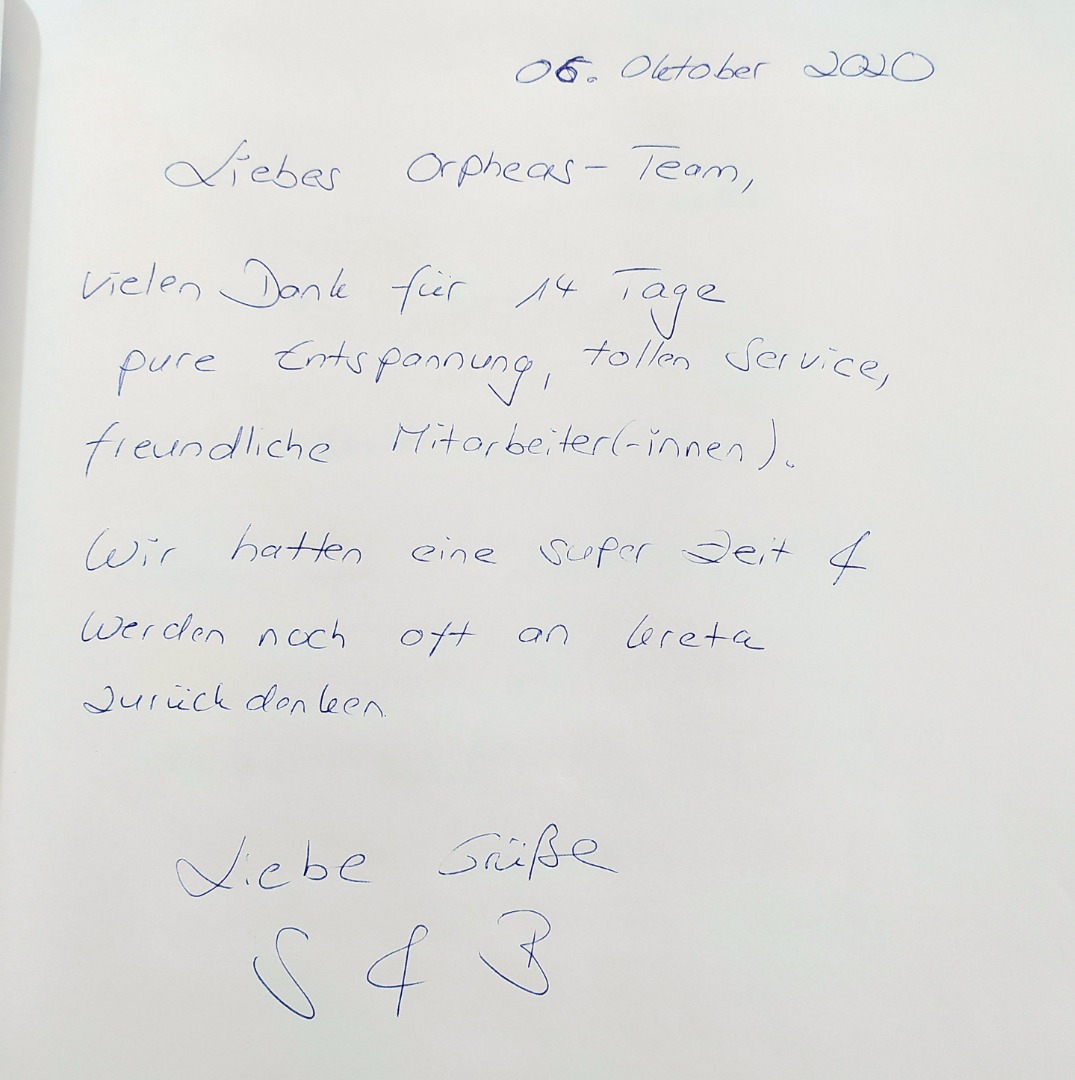 06. Oktober 2020
Liebes Orpheas-Team,
vielen Dank für 14 Tage
pure Entspannung, tollen Service,
freundliche Mitarbeiter(-innen).
Wir hatten eine super Zeit &
werden noch oft an Kreta
zurück denken.
Liebe Grüße
S & B